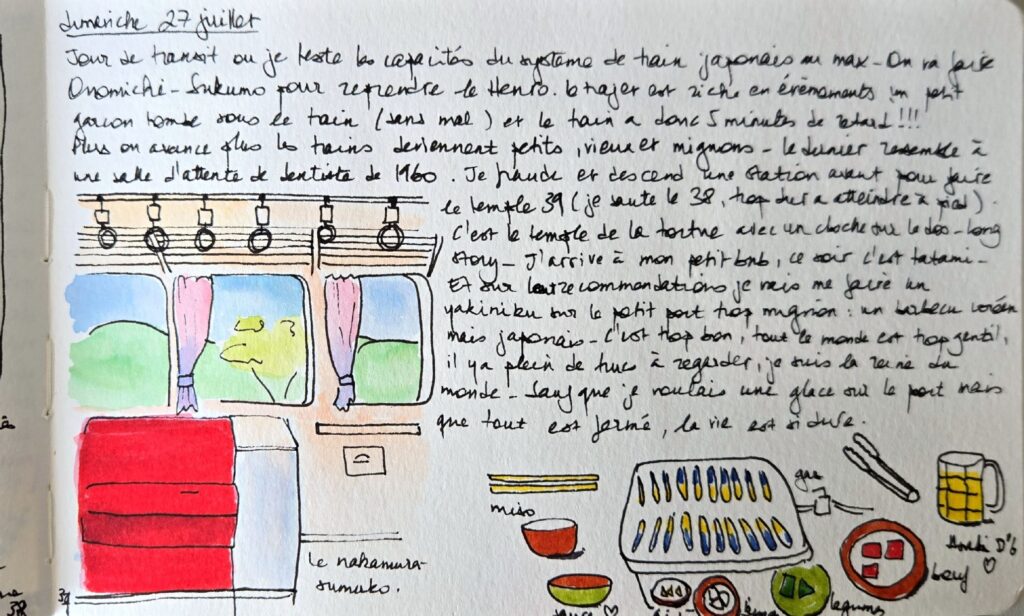 dimanche 27 juillet
Jour de transit ou je teste les capacités du système de train japonais au max - On va faire
Onomichi - Sukumo pour reprendre le Henro. le trajet est riche en évènements un petit
garçon tombe sous le train (sans mal) et le train a donc 5 minutes de retard!!!
Plus on avance plus les trains deviennent petits, vieux et mignons - le dernier ressemble à
une salle d'attente de dentiste de 1960. Je fraude et descend une station avant pour faire
le temple 39 (je saute le 38, trop dur a atteindre à pied).
C'est le temple de la tortue avec un cloche sur le dos - long
story - J'arrive à mon petit bnb, ce soir c'est tatami -
Et sur leur recommendations je vais me faire un
yakiniku sur le petit port trop mignon : un barbecu coréen
mais japonais - C'est trop bon, tout le monde est trop gentil,
il y a plein de trucs à regarder, je suis la reine du
monde - Sauf que je voulais une glace sur le port mais
que tout est fermé, la vie est si dure.
gaz
miso
boeuf
legumes
sauce ♡
le nakamura-
sumuko.
37
38